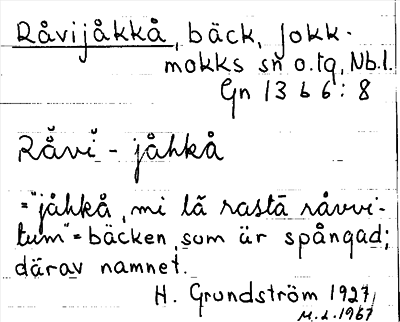 Råvijåkkå, bäck, Jokk-
mokks sn o. tg, Nb.l.
Gn 13 b 6 : 8
Rå̆vĭ - jåhkå
="jåhkå, mi lā rastā råvvi-
tum" = bäcken, som är spångad;
därav namnet.
H. Grundström 1927
M.L. 1967